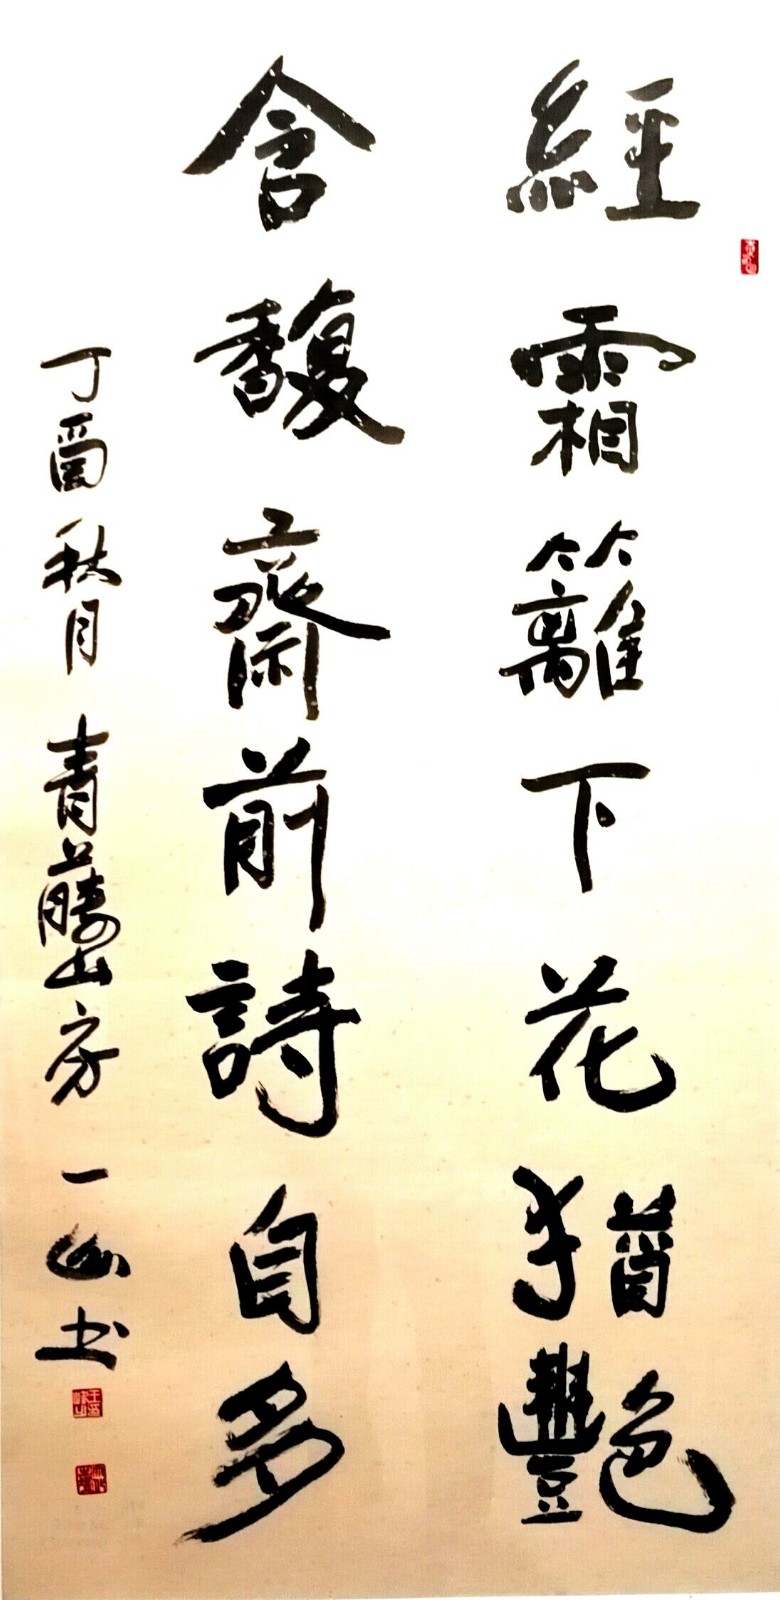 經霜籬下花猶豔
含馥齋前詩自多
丁酉秋月青藤山房一山书